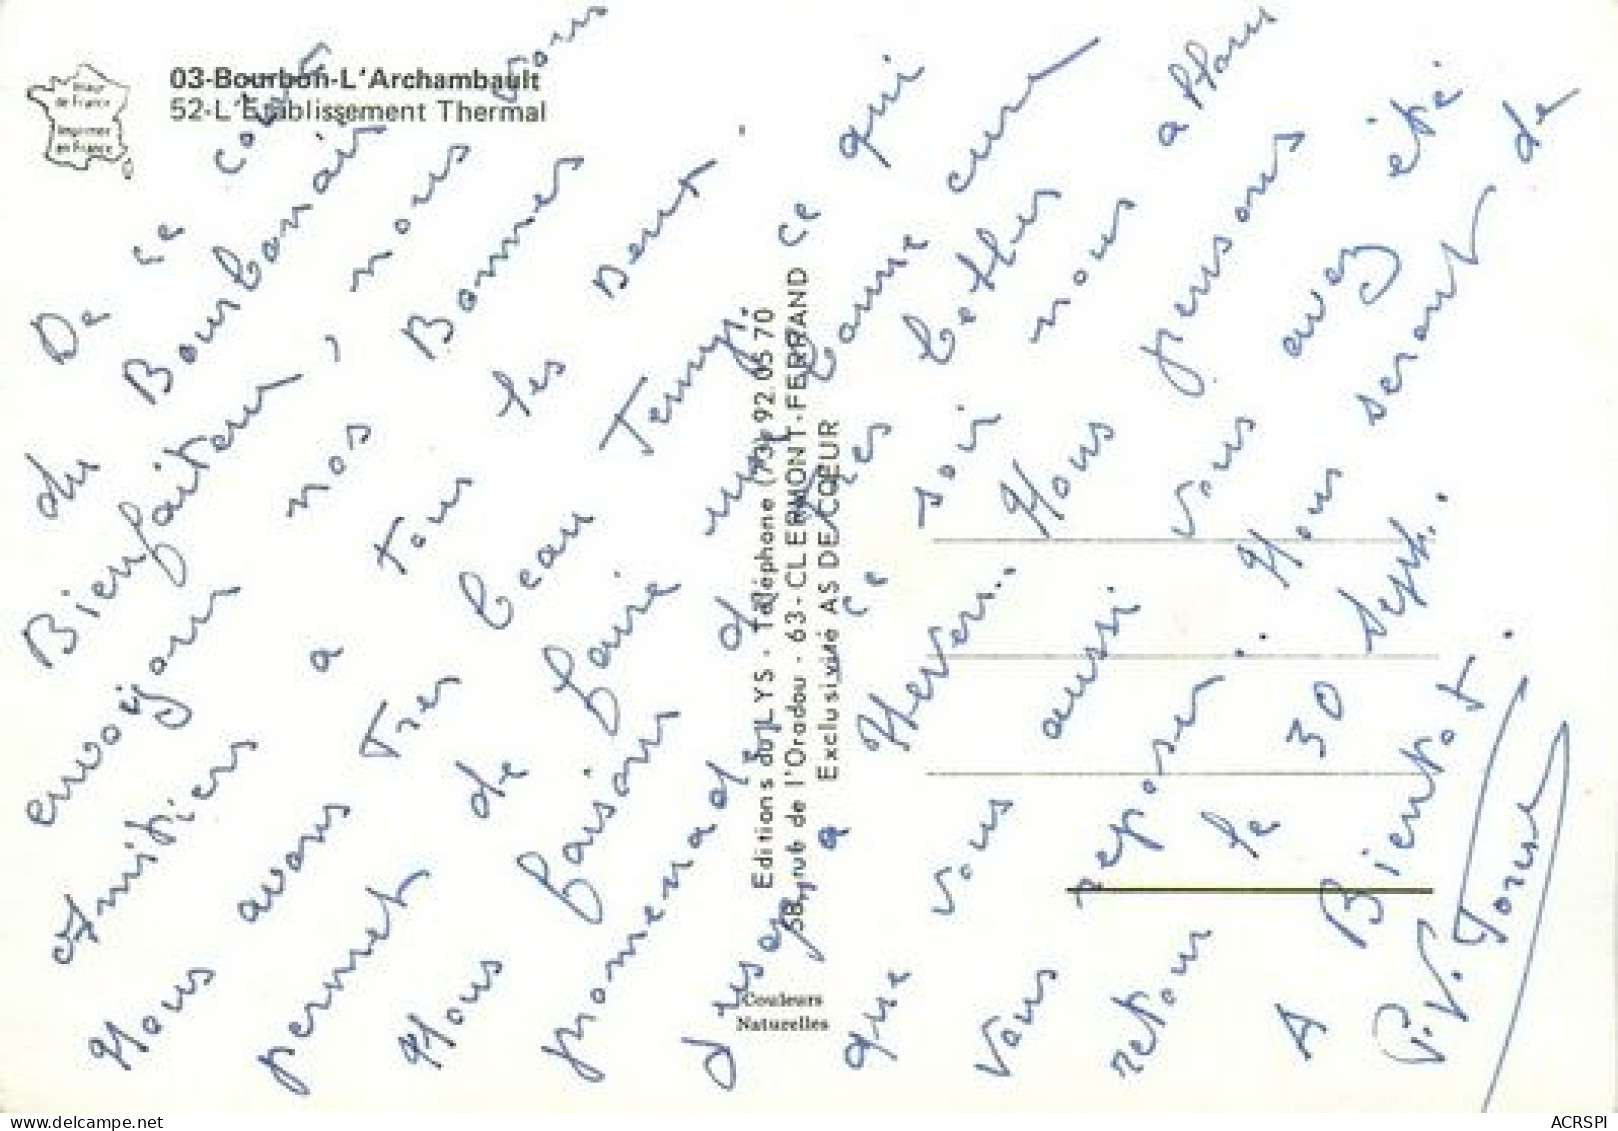 Tour
de France
Imprimée
en France
03-Bourbon-L'Archambault
52-L'Etablissement Thermal
De ce coin
du Bourbonnais
Bienfaiteur, nous vous
envoyons nos Bonnes
Amitiés a tous les Deux
Nous avons Tres beau Temps. ce qui
permet de faire une bonne cure
Nous faisons de
promenades
a ce soir nous allons
Nevers.. Nous pensons
que vous aussi vous avez été
Vous reposer. Nous serons de
retour le 30 Sept.
A Bientot.
Editions du LYS - Téléphone (73) 92.05 70
58, rue de l'Oradou - 63-CLERMONT-FERRAND
Exclusivité AS DE CŒUR
Couleurs
Naturelles
delcampe.net
ACRSPI